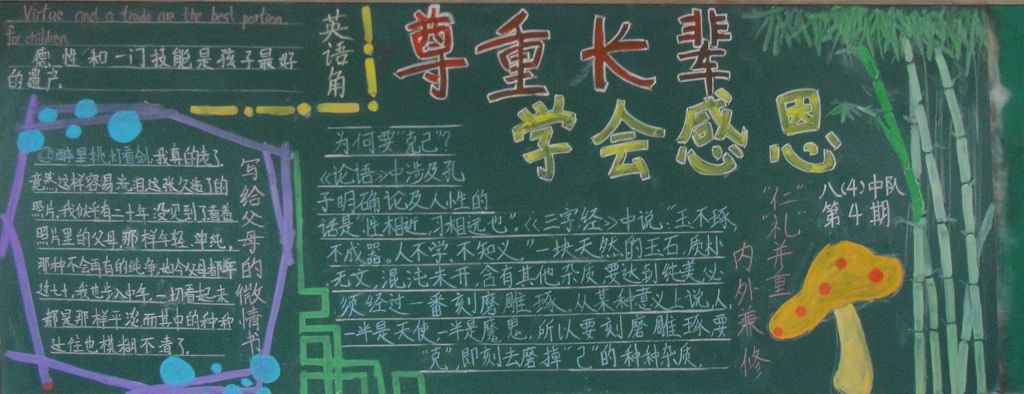 Virtue and a trade are the best portion
for children
德性和一门技能是孩子最好
的遗产。
英语角
尊重长辈
学会感恩
八(4)中队
第4期
"仁""礼"并重
内外兼修
写给父母的微情书
醉里挑灯看剑:我真的老了
竟然这样容易流泪这张久违了的
照片,我似乎有二十年没见到了看着
照片里的父母,那样年轻、单纯,
那种不会再有的纯净,如今父母都年
过七十,我也步入中年,一切看起来
都是那样平淡而其中的种种
过往也模糊不清了。
为何要"克己"?
《论语》中涉及孔
子明确论及人性的
话是,"性相近,习相远也"。《三字经》中说,"玉不琢
不成器。人不学,不知义,"一块天然的玉石,质朴
无文,混沌未开,含有其他杂质,要达到纯美必
须经过一番刻磨雕琢,从某种意义上说,人
一半是天使,一半是魔鬼,所以要刻磨雕琢,要
"克",即刻去磨掉"己"的种种杂质